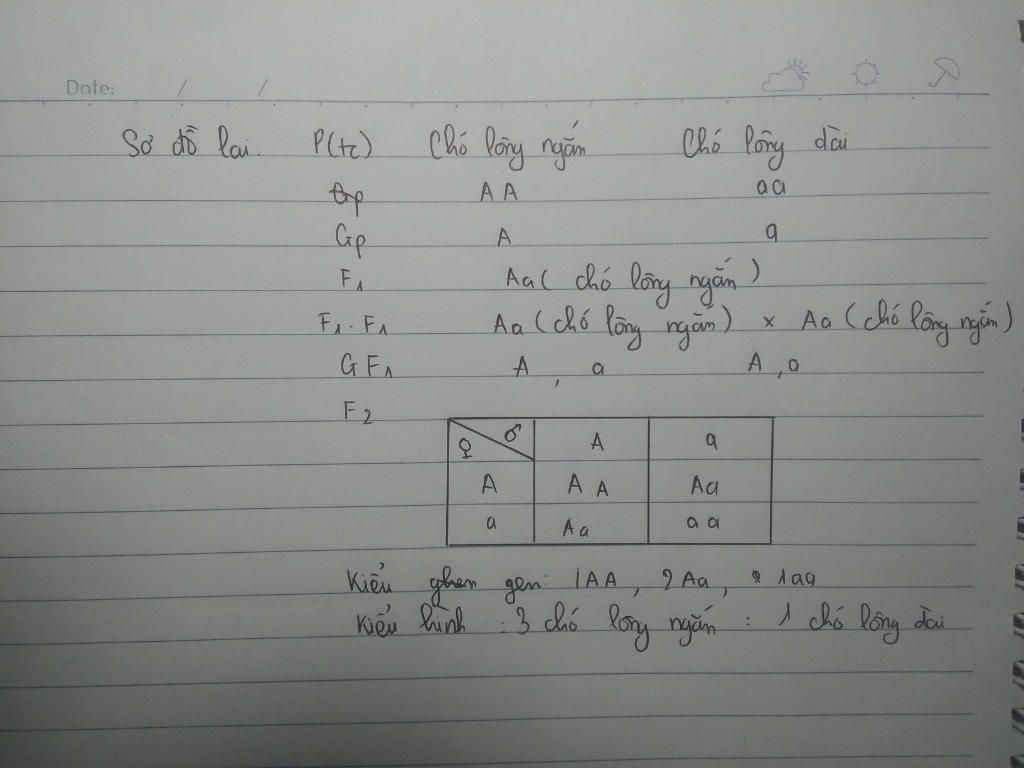 Date: / /
Sơ đồ lai: P(tc) Chó lông ngắn Chó lông dài
Gp AA aa
Gp A a
F1 Aa ( chó lông ngắn )
F1 . F1 Aa ( chó lông ngắn ) × Aa ( chó lông ngắn )
GF1 A , a A , a
F2
♀ ♂ A a
A A A Aa
a Aa a a
Kiểu ghen gen: 1AA, 2Aa, 1aa
Kiểu hình : 3 chó lông ngắn : 1 chó lông dài